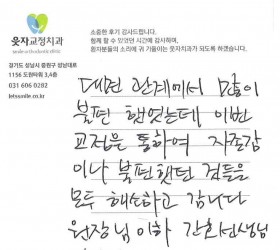 소중한 후기 감사드립니다.
함께 할 수 있었던 시간에 감사하며,
환자분들의 소리에 귀 기울이는 웃자치과가 되도록 하겠습니다.
웃자교정치과
경기도 성남시 중원구 성남대로
1156 도원타워 3,4층
031 606 0282
letssmile.co.kr
대면 관계에서 많이
불편 했었는데 이번
교정을 통하여 자존감
이나 불편했던 것들을
모두 해소하고 갑니다
원장님 이하 간호선생님